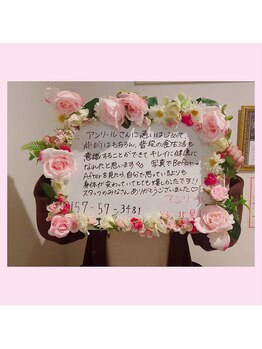 アンリールさんに通いはじめて
体がりはもちろん、普段の食生活も
意識することができてキレイに健康に
なれたと思います。写真でBeforeと
Afterを見たら、自分で思っているよりも
身体が変わっていてとても嬉しかったです!!
スタッフのみなさんありがとうございました♡
アンリ
157-57-3481